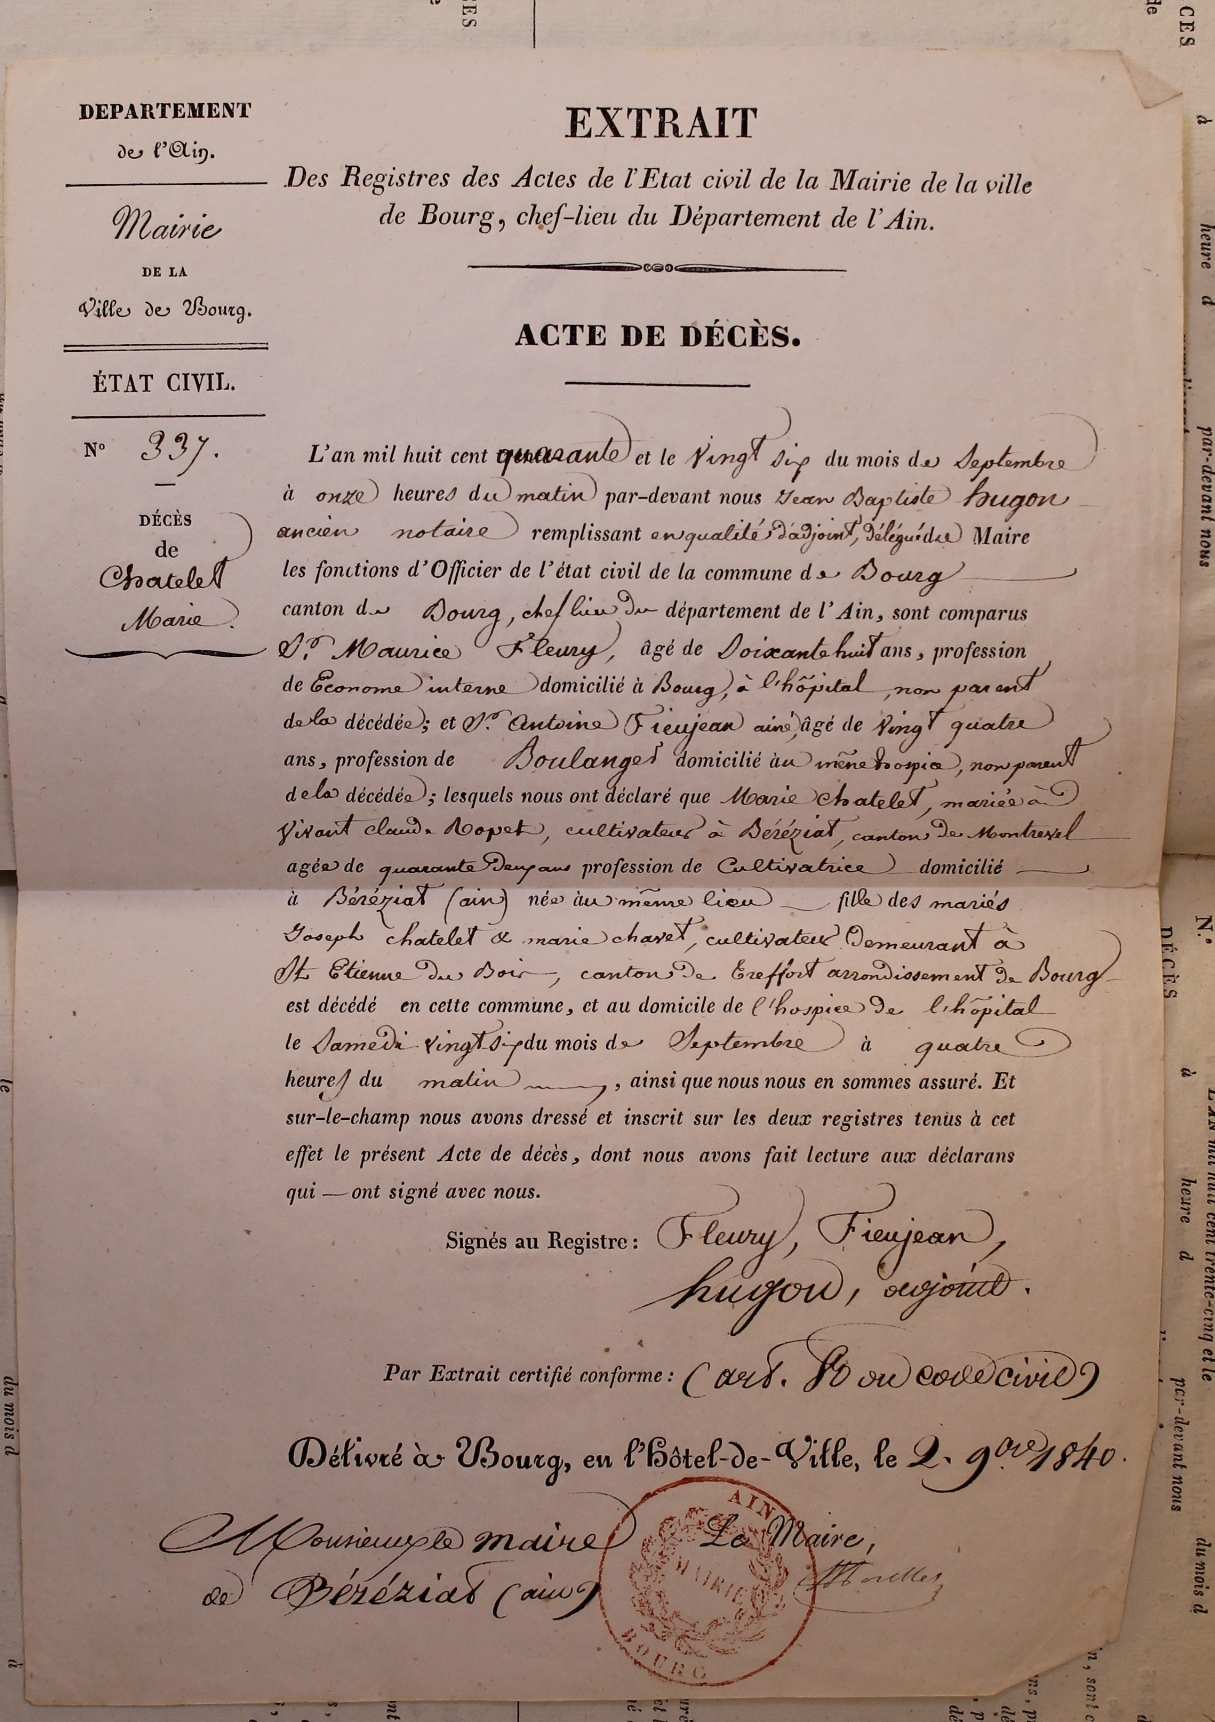 DEPARTEMENT
de l'Ain.
Mairie
DE LA
Ville de Bourg.
ÉTAT CIVIL.
N° 337.
DÉCÈS
de
Chatelet
Marie.
EXTRAIT
Des Registres des Actes de l'Etat civil de la Mairie de la ville
de Bourg, chef-lieu du Département de l'Ain.
ACTE DE DÉCÈS.
L'an mil huit cent quarante et le vingt six du mois de Septembre
à onze heures du matin par-devant nous Jean Baptiste hugon
ancien notaire remplissant en qualité d'adjoint, délégué du Maire
les fonctions d'Officier de l'état civil de la commune de Bourg
canton de Bourg, chef lieu du département de l'Ain, sont comparus
Sr. Maurice Fleury, âgé de Soixante huit ans, profession
de Econome interne domicilié à Bourg, à l'hôpital, non parent
de la décédée; et Sr. Antoine Fieujean ainé, âgé de vingt quatre
ans, profession de Boulanger domicilié au même hospice, non parent
de la décédée; lesquels nous ont déclaré que Marie Chatelet, mariée à
Vivant claude Ropet, cultivateur à Béréziat, canton de Montrevel
agée de quarante deux ans profession de Cultivatrice domicilié
à Béréziat (ain) née au même lieu fille des mariés
Joseph chatelet & marie chavet, cultivateur demeurant à
St Etienne du Bois, canton de Treffort arrondissement de Bourg
est décédé en cette commune, et au domicile de l'hospice de l'hôpital
le Samedi vingt six du mois de Septembre à quatre
heures du matin, ainsi que nous nous en sommes assuré. Et
sur-le-champ nous avons dressé et inscrit sur les deux registres tenus à cet
effet le présent Acte de décès, dont nous avons fait lecture aux déclarans
qui — ont signé avec nous.
Signés au Registre: Fleury, Fieujean,
hugon, adjoint.
Par Extrait certifié conforme: (art. 80 du code civil)
Délivré à Bourg, en l'Hôtel-de-Ville, le 2. 9bre 1840.
Monsieur le maire
de Béréziat (ain)
Le Maire,
AIN
MAIRIE
BOURG
CES
de
à
heure d
par-devant nous
N.°
DÉCÈS
à
heure d
L'AN mil huit cent trente-cinq et le
par-devant nous
du mois d
le
du mois d
à